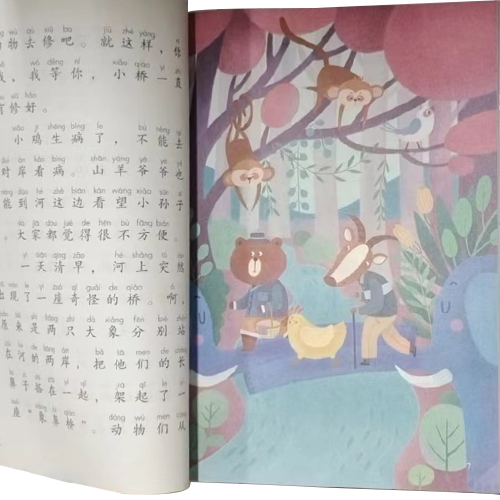 物去修吧。就这样，你
我，我等你，小桥一直
有修好。
小鸡生病了，不能去
对岸看病。山羊爷爷也
能到河这边看望小孙子
。大家都觉得很不方便。
一天清早，河上突然
出现了一座奇怪的桥。啊，
原来是两只大象分别站
在河的两岸，把他们的长
鼻子搭在一起，架起了一
座“象鼻桥”。动物们从
7